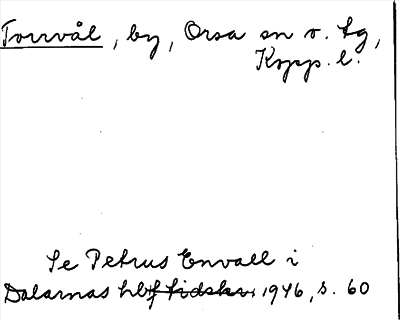 Torrvål, by, Orsa sn o. tg,
Kopp. l.
Se Petrus Envall i
Dalarnas hbf tidskr. 1946, s. 60